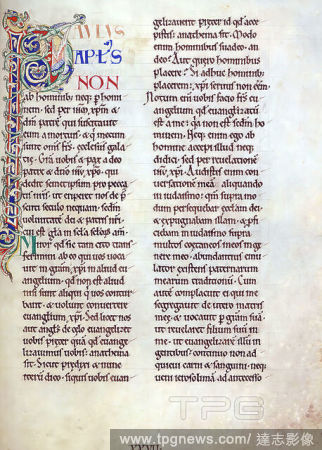 AVLVS
Ap̄LS
NON
ab hominib; neq; p̄ homi
nem, sed per ihm̄. xp̄m. &
dm̄ patrē qui suscitauit
eum a mortuis. & q̄ mecum
sunt om̄s frs̄. ecclesiis galatie
Gr̄a uobis & pax a deo
patre & dn̄o ihū. xp̄o. qui
dedit semetipsum pro pecca
tis
uoluntatē dei & patris nr̄i.
cui est glā in scl̄a sclo₄ am̄.
Miror qd̄ sic tam cito trans
ferimini ab eo qui uos uoca
uit in gr̄am. xp̄i in aliud eu
angelium. qd̄ non est aliud
nisi sunt aliqui q̄ uos contur
bant. & uolunt conuertere
euangelium. xp̄i. Sed licet nos
aut angl̄s de celo euangelizet
uobis p̄ter quā qd̄ euan
gelizauimus uobis. anathema
sit. Sicut p̄diximus & nunc
iterū dico. siquis uobis euan
gelizauerit p̄ter id qd̄ acce
pistis. anathema sit. Modo
enim hominibus suadeo. an
deo? Aut quero hominibus
placere? Si adhuc hominib;
placerem. xp̄i seruus non eēm.
Notum eni uobis facio frs̄
euangelium qd̄ euangelizatū
est a me. qa non est sedm̄ ho
minem. Neq; enim ego ab
homine accepi illud neq;
didici. sed per reuelationē
ihū. xp̄i. Audistis enim con
uersationē meā aliquando
in iudaismo. qm̄ supra mo
dum persequebar ecclam̄ dei.
& expugnabam illam. & p̄fi
ciebam in iudaismo supra
multos coetaneos meos in ge
nere meo. abundantius emu
lator existens paternarum
mearum traditionū. Cum
autē complacuit ei qui me
segregauit de utero matris
meę. & uocauit p̄ gr̄am suā.
ut reuelaret filium suū in
me. ut euangelizarē illū in
gentibus. continuo non ad
quieui carni & sanguini. neq;
ueni ierosolimā ad antecesso
XXVII
TPG
www.tpgnews.com / 達志影像